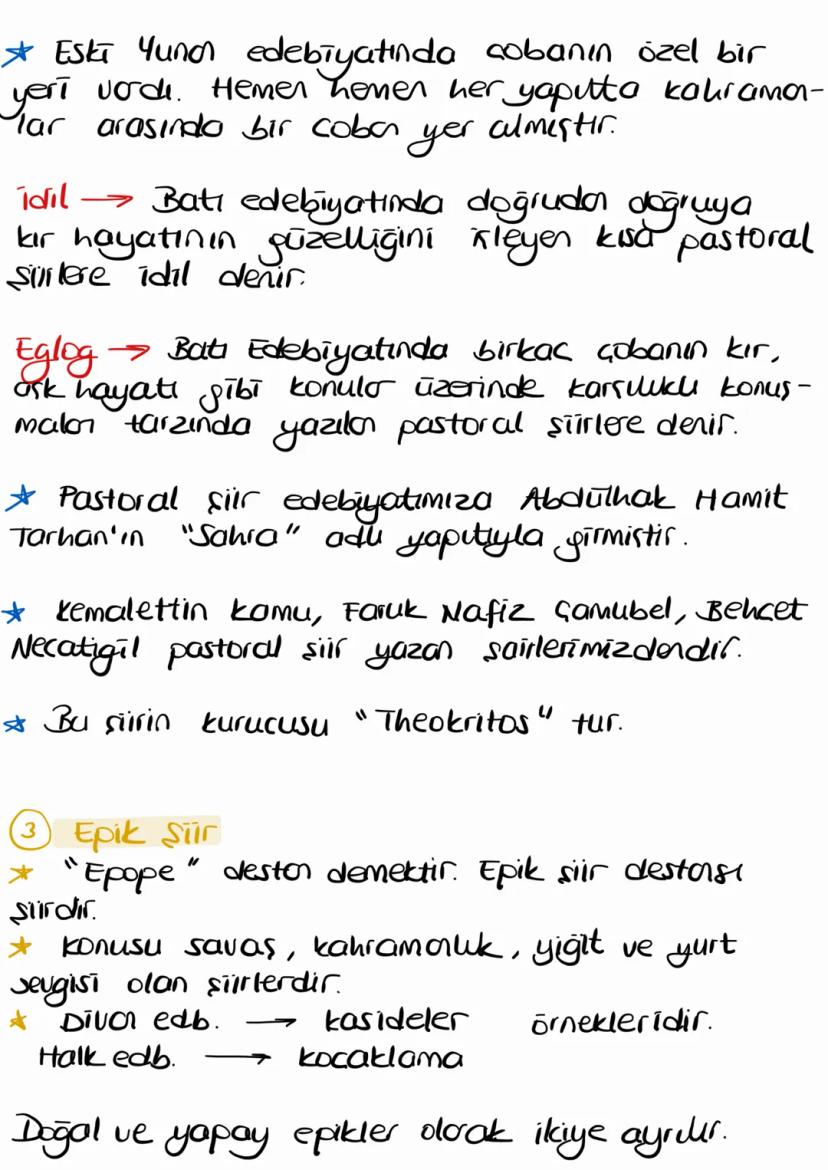 ★ Eski Yunan edebiyatında çobanın özel bir
yeri vardı. Hemen hemen her yapıtta kahraman-
lar arasında bir çoban yer almıştır.
idil → Batı edebiyatında doğrudan doğruya
kır hayatının güzelliğini işleyen kısa pastoral
şiirlere idil denir.
Eglog → Batı Edebiyatında birkaç çobanın kır,
aşk hayatı gibi konular üzerinde karşılıklı konuş-
maları tarzında yazılan pastoral şiirlere denir.
★ Pastoral şiir edebiyatımıza Abdülhak Hamit
Tarhan'ın "Sahra" adlı yapıtıyla girmiştir.
★ Kemalettin Kamu, Faruk Nafiz Çamlıbel, Behçet
Necatigil pastoral şiir yazan şairlerimizdendir.
★ Bu şiirin kurucusu "Theokritos" tur.
3 Epik Şiir
★ "Epope" destan demektir. Epik şiir destansı
şiirdir.
★ Konusu savaş, kahramanlık, yiğit ve yurt
sevgisi olan şiirlerdir.
★ Divan edb. → kasideler örnekleridir.
Halk edb. → koçaklama
Doğal ve yapay epikler olarak ikiye ayrılır.